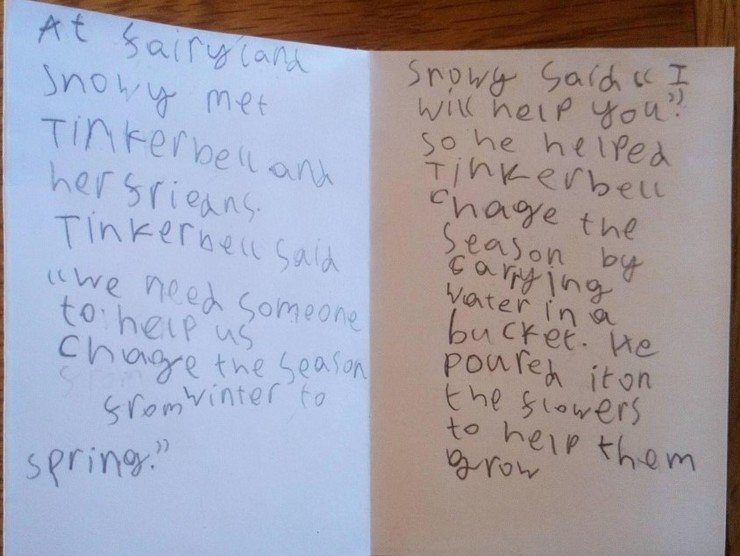 At fairyland
Snowy met
Tinkerbell and
her frieans.
Tinkerbell said
"we need someone
to help us
chage the season
from winter to
spring."
Snowy said "I
will help you".
So he helped
Tinkerbell
chage the
season by
carrying
water in a
bucket. He
poured it on
the flowers
to help them
grow